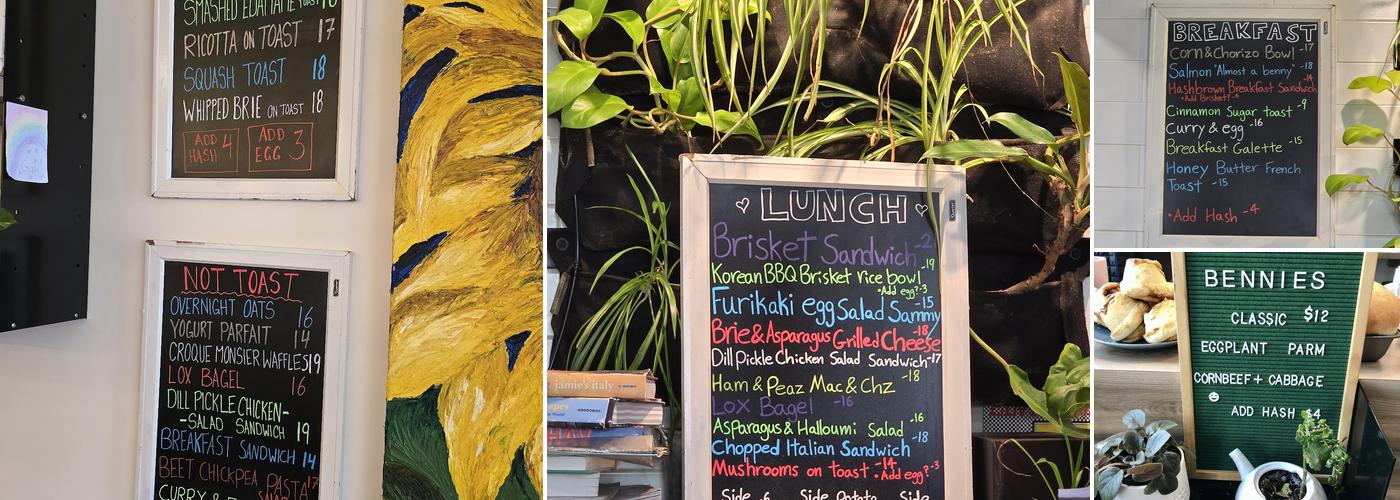 SMASHED EDAMAME TOAST 18
RICOTTA ON TOAST 17
SQUASH TOAST 18
WHIPPED BRIE ON TOAST 18
ADD HASH 4
ADD EGG 3
NOT TOAST
OVERNIGHT OATS 16
YOGURT PARFAIT 14
CROQUE MONSIER WAFFLES 19
LOX BAGEL 16
DILL PICKLE CHICKEN-
-SALAD SANDWICH 19
BREAKFAST SANDWICH 14
BEET CHICKPEA PASTA 17
CURRY &
LUNCH
Brisket Sandwich -2
Korean BBQ Brisket rice bowl -19
•Add egg? -3
Furikaki egg Salad Sammy -15
Brie & Asparagus Grilled Cheese -18
Dill Pickle Chicken Salad Sandwich -17
Ham & Peaz Mac & Chz -18
Lox Bagel -16
Asparagus & Halloumi Salad -16
Chopped Italian Sandwich -18
Mushrooms on toast -14 •Add egg? -3
Side -6 Side Potato Side
jamie's italy
BREAKFAST
Corn & Chorizo Bowl -17
Salmon "Almost a benny" -18
Hashbrown Breakfast Sandwich -14
•Add Brisket? -4
Cinnamon Sugar toast -9
Curry & egg -16
Breakfast Galette -15
Honey Butter French
Toast -15
•Add Hash -4
BENNIES
CLASSIC $12
EGGPLANT PARM
CORNBEEF + CABBAGE
ADD HASH $4